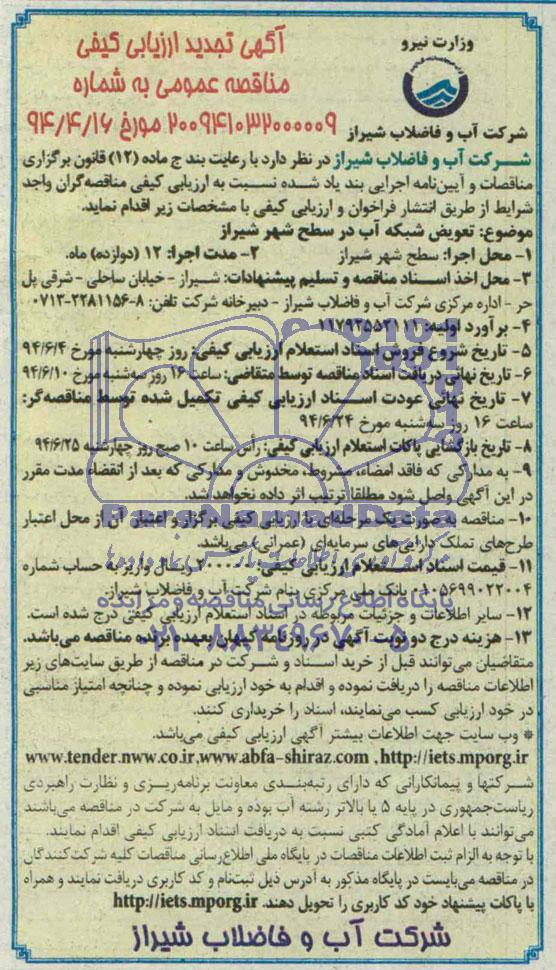 وزارت نیرو
آگهی تجدید ارزیابی کیفی
مناقصه عمومی به شماره
۲۰۰۹۴۱۰۳۲۰۰۰۰۰۹ مورخ ۹۴/۴/۱۶
شرکت آب و فاضلاب شیراز
شرکت آب و فاضلاب شیراز در نظر دارد با رعایت بند ج ماده (۱۲) قانون برگزاری
مناقصات و آیین‌نامه اجرایی بند یاد شده نسبت به ارزیابی کیفی مناقصه‌گران واجد
شرایط از طریق انتشار فراخوان و ارزیابی کیفی با مشخصات زیر اقدام نماید.
موضوع: تعویض شبکه آب در سطح شهر شیراز
۱- محل اجرا: سطح شهر شیراز ۲- مدت اجرا: ۱۲ (دوازده) ماه.
۳- محل اخذ اسناد مناقصه و تسلیم پیشنهادات: شیراز - خیابان ساحلی - شرقی پل
حر - اداره مرکزی شرکت آب و فاضلاب شیراز - دبیرخانه شرکت تلفن: ۸-۲۲۸۱۱۵۶-۰۷۱۳
۴- برآورد اولیه: ۱۱۷۹۲۵۵۲۱۱۱
۵- تاریخ شروع فروش اسناد استعلام ارزیابی کیفی: روز چهارشنبه مورخ ۹۴/۶/۴
۶- تاریخ نهائی دریافت اسناد مناقصه توسط متقاضی: ساعت ۱۶ روز سه‌شنبه مورخ ۹۴/۶/۱۰
۷- تاریخ نهائی عودت اسناد ارزیابی کیفی تکمیل شده توسط مناقصه‌گر:
ساعت ۱۶ روز سه‌شنبه مورخ ۹۴/۶/۲۴
۸- تاریخ بازگشایی پاکات استعلام ارزیابی کیفی: رأس ساعت ۱۰ صبح روز چهارشنبه ۹۴/۶/۲۵
۹- به مدارکی که فاقد امضاء، مشروط، مخدوش و مدارکی که بعد از انقضاء مدت مقرر
در این آگهی واصل شود مطلقا ترتیب اثر داده نخواهد شد.
۱۰- مناقصه به صورت یک مرحله‌ای با ارزیابی کیفی برگزار و اعتبار آن از محل اعتبار
طرح‌های تملک دارایی‌های سرمایه‌ای (عمرانی) می‌باشد.
۱۱- قیمت اسناد استعلام ارزیابی کیفی: ریال واریز به حساب شماره
بانک ملی مرکزی بنام شرکت آب و فاضلاب شیراز.
۱۲- سایر اطلاعات و جزئیات مربوطه در اسناد استعلام ارزیابی کیفی درج شده است.
۱۳- هزینه درج دو نوبت آگهی در روزنامه کیهان بعهده برنده مناقصه می‌باشد.
متقاضیان می‌توانند قبل از خرید اسناد و شرکت در مناقصه از طریق سایت‌های زیر
اطلاعات مناقصه را دریافت نموده و اقدام به خود ارزیابی نموده و چنانچه امتیاز مناسبی
در خود ارزیابی کسب می‌نمایند، اسناد را خریداری کنند.
* وب سایت جهت اطلاعات بیشتر آگهی ارزیابی کیفی می‌باشد.
www.tender.nww.co.ir,www.abfa-shiraz.com ,http://iets.mporg.ir
شرکتها و پیمانکارانی که دارای رتبه‌بندی معاونت برنامه‌ریزی و نظارت راهبردی
ریاست‌جمهوری در پایه ۵ یا بالاتر رشته آب بوده و مایل به شرکت در مناقصه می‌باشند
می‌توانند با اعلام آمادگی کتبی نسبت به دریافت اسناد ارزیابی کیفی اقدام نمایند.
با توجه به الزام ثبت اطلاعات مناقصات در پایگاه ملی اطلاع‌رسانی مناقصات کلیه شرکت‌کنندگان
در مناقصه می‌بایست در پایگاه مذکور به آدرس ذیل ثبت‌نام و کد کاربری دریافت نمایند و همراه
با پاکات پیشنهاد خود کد کاربری را تحویل دهند. http://iets.mporg.ir
شرکت آب و فاضلاب شیراز
ParsNamadData
پایگاه اطلاع رسانی مناقصه و مزایده
۰۲۱-۸۸۳۴۹۶۷۰-۵